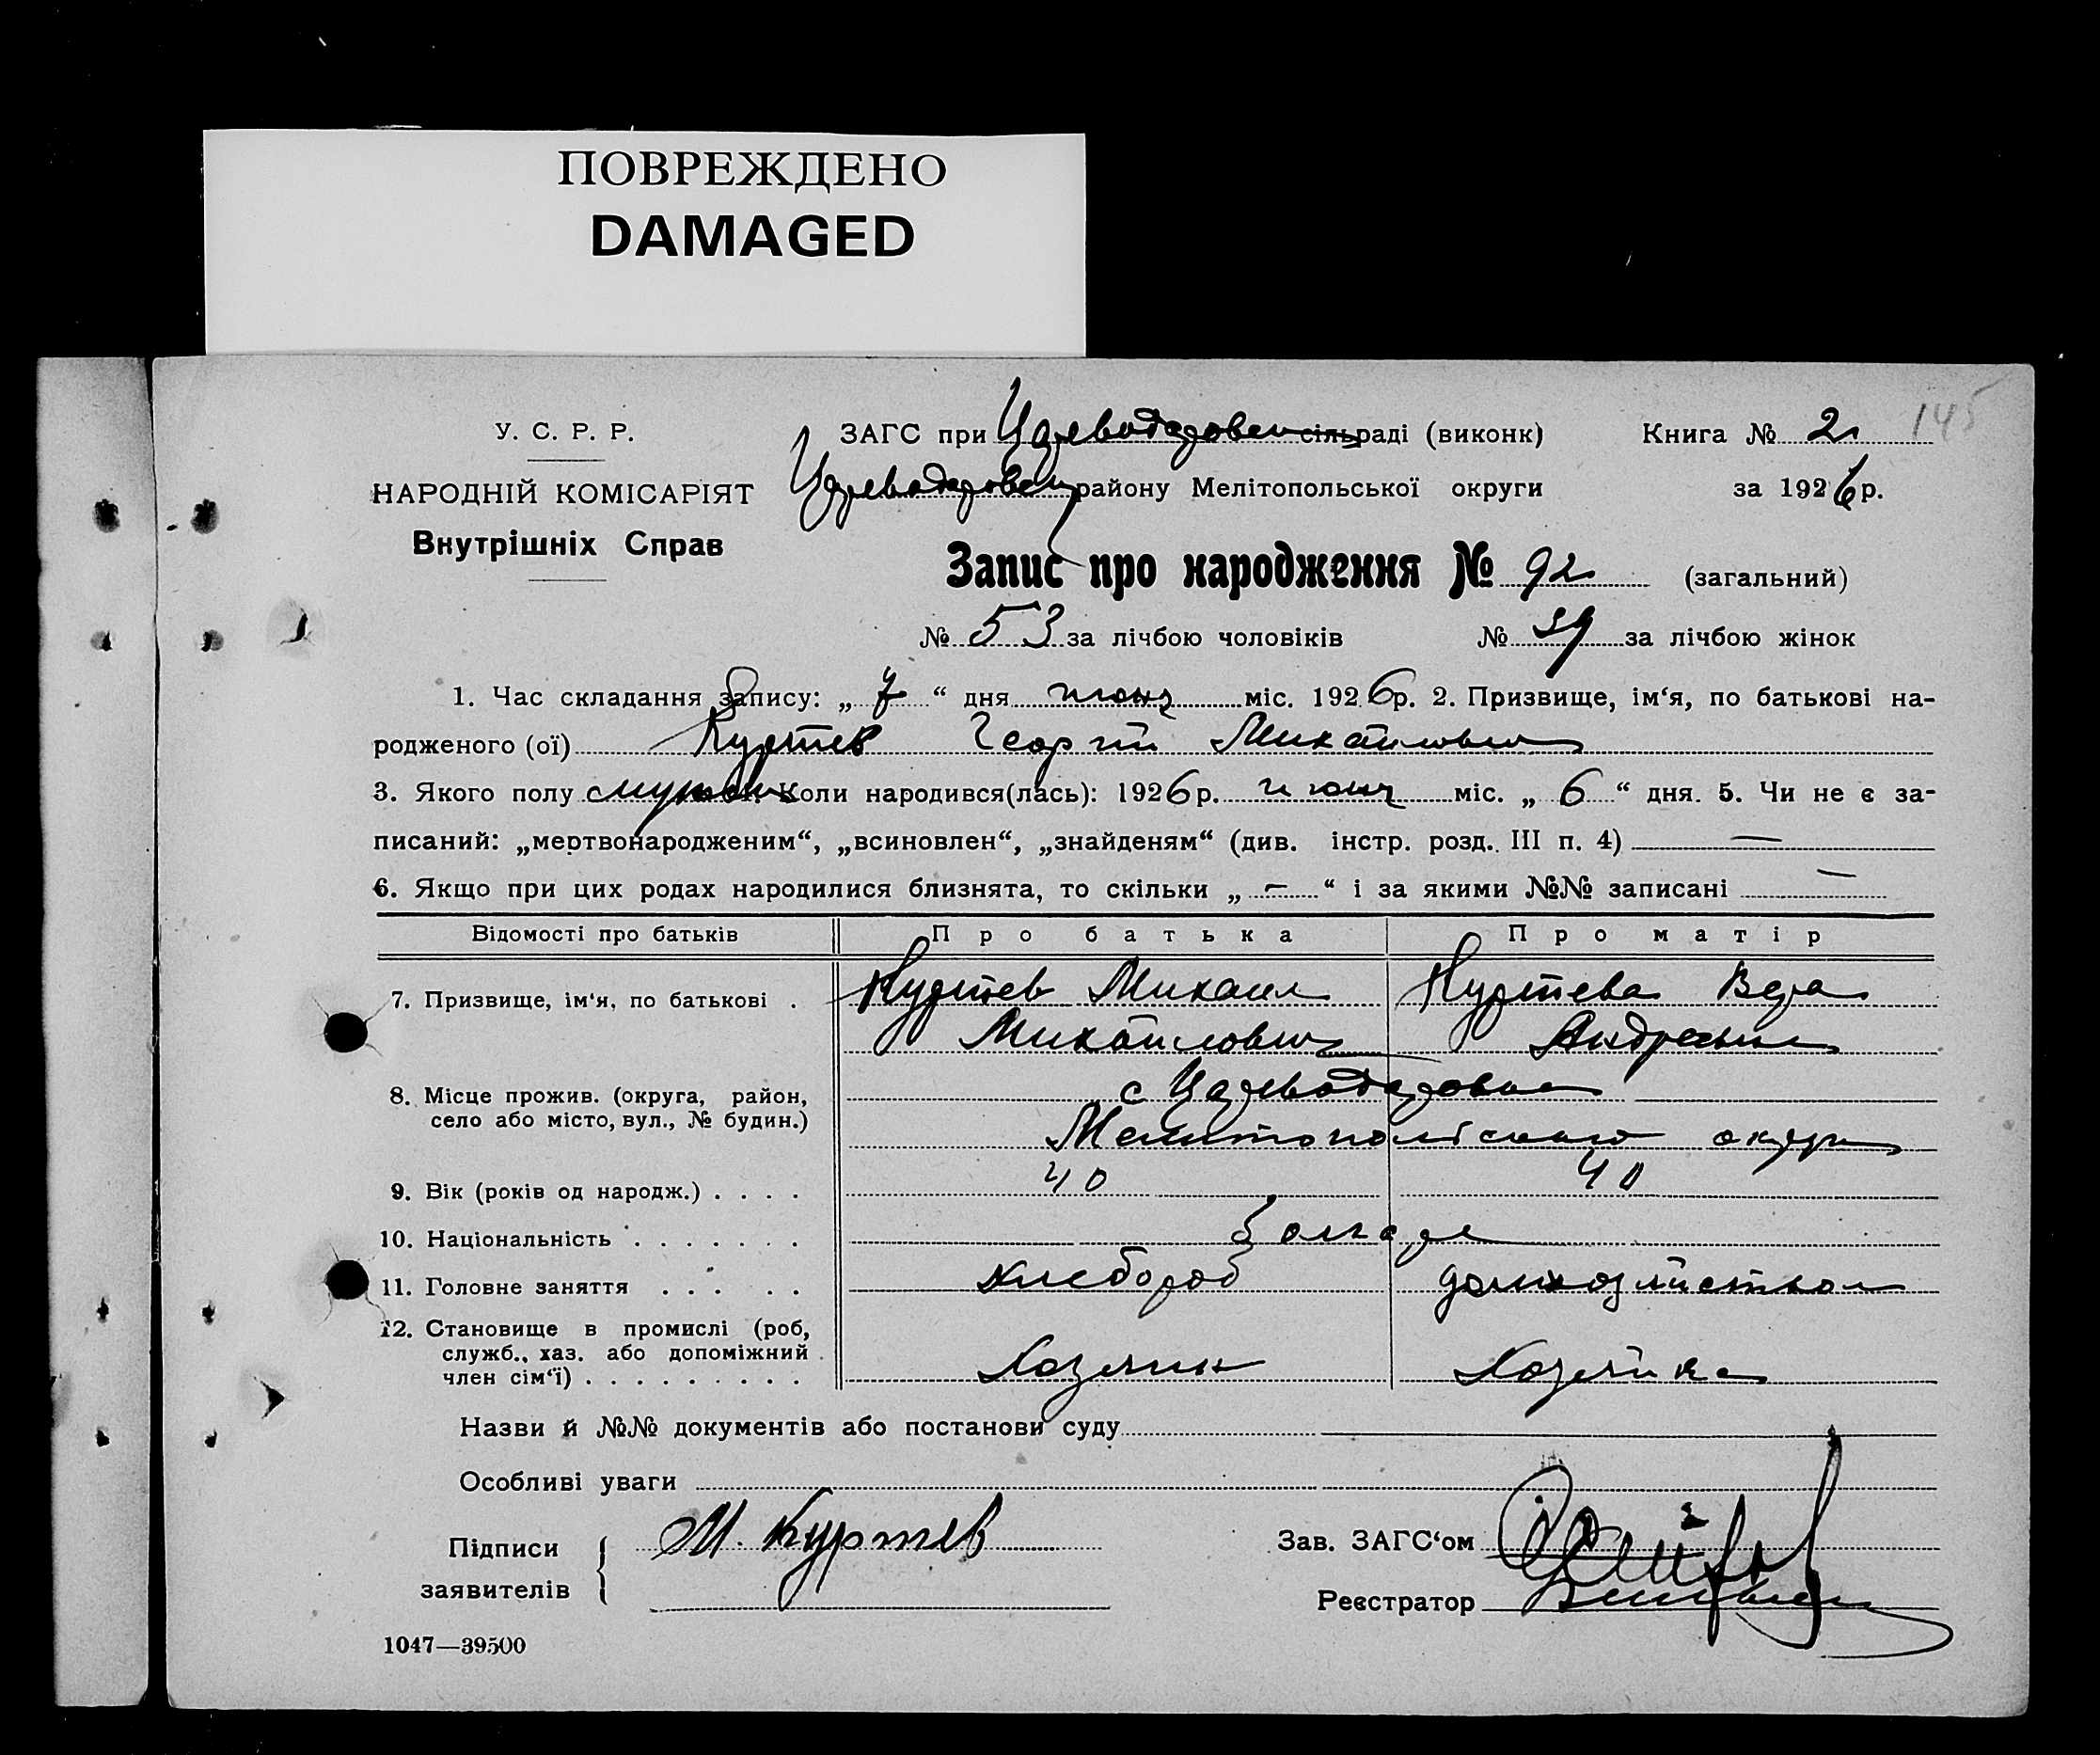 ПОВРЕЖДЕНО
DAMAGED
145
У. С. Р. Р.
НАРОДНІЙ КОМІСАРІЯТ
Внутрішніх Справ
ЗАГС при сільраді (виконк) Книга № 2
району Мелітопольської округи за 1926 р.
Запис про народження № 92 (загальний)
№ 53 за лічбою чоловіків № 39 за лічбою жінок
1. Час складання запису: „ 7 “ дня июня міс. 1926 р. 2. Призвище, ім‘я, по батькові на-
родженого (ої) Куртев Георгий Михайлович
3. Якого полу мужск 4. Коли народився(лась): 1926 р. июня міс. „ 6 “ дня. 5. Чи не є за-
писаний: „мертвонародженим“, „всиновлен“, „знайденям“ (див. інстр. розд. III п. 4) —
6. Якщо при цих родах народилися близнята, то скільки „ — “ і за якими №№ записані —
Відомості про батьків Про батька Про матір
7. Призвище, ім‘я, по батькові . Куртев Михаил Куртева Вера
Михайлович Андреевна
8. Місце прожив. (округа, район, с
село або місто, вул., № будин.) Мелитопольского округа
9. Вік (років од народж.) . . . . 40 40
10. Національність . . . . . . . болгаре
11. Головне заняття . . . . . Хлебороб домхозяйством
12. Становище в промислі (роб,
служб., хаз. або допоміжний
член сім‘ї) . . . . . . . . . Хозяин Хозяйка
Назви й №№ документів або постанови суду
Особливі уваги
Підписи М. Куртев Зав. ЗАГС‘ом
заявителів Реєстратор
1047—39500